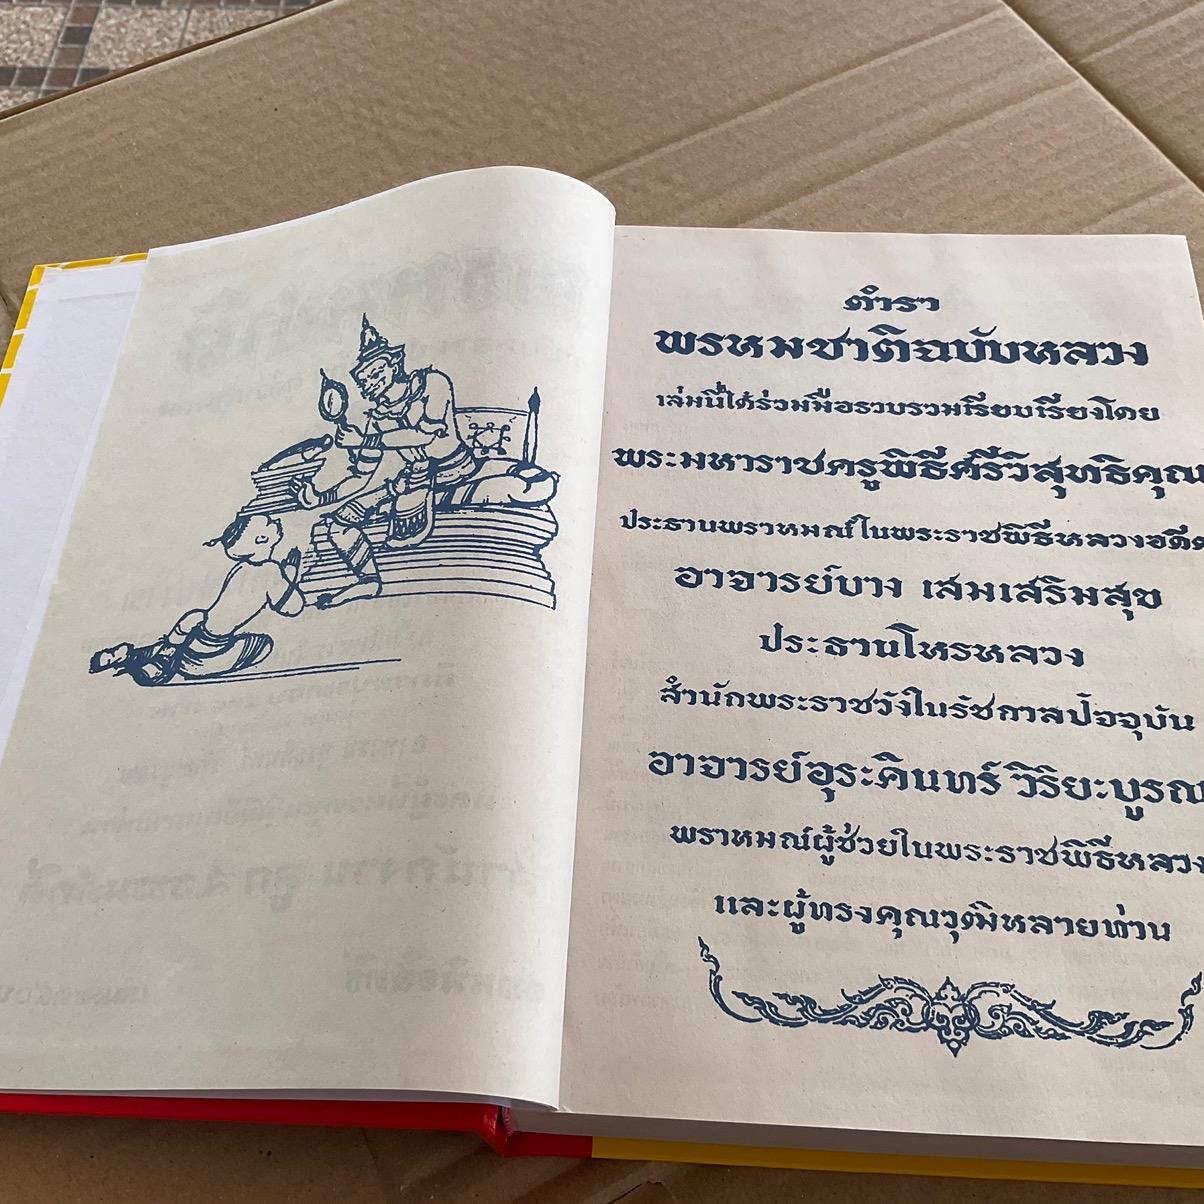 ตำรา
พรหมชาติฉบับหลวง
เล่มนี้ได้ร่วมมือรวบรวมเรียบเรียงโดย
พระมหาราชครูพิธีศรีวิสุทธิคุณ
ประธานพราหมณ์ในพระราชพิธีหลวงอดีต
อาจารย์บาง เสมเสริมสุข
ประธานโหรหลวง
สำนักพระราชวังในรัชกาลปัจจุบัน
อาจารย์อุระคินทร์ วิริยะบูรณ
พราหมณ์ผู้ช่วยในพระราชพิธีหลวง
และผู้ทรงคุณวุฒิหลายท่าน